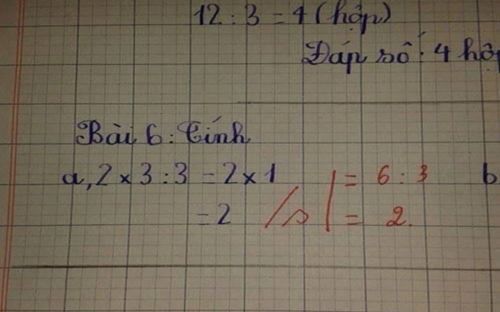 12 : 3 = 4 (hộp)
Đáp số : 4 hộp
Bài 6 : Tính
a, 2 × 3 : 3 = 2 × 1 = 6 : 3 b
= 2 /s = 2.